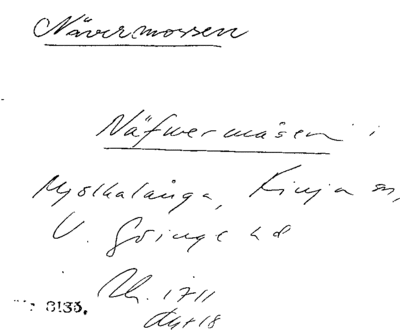 Nävermossen
Näfwermåsen i
Mjölkalånga, Finja sn,
V. Göinge hd
1711
3133.